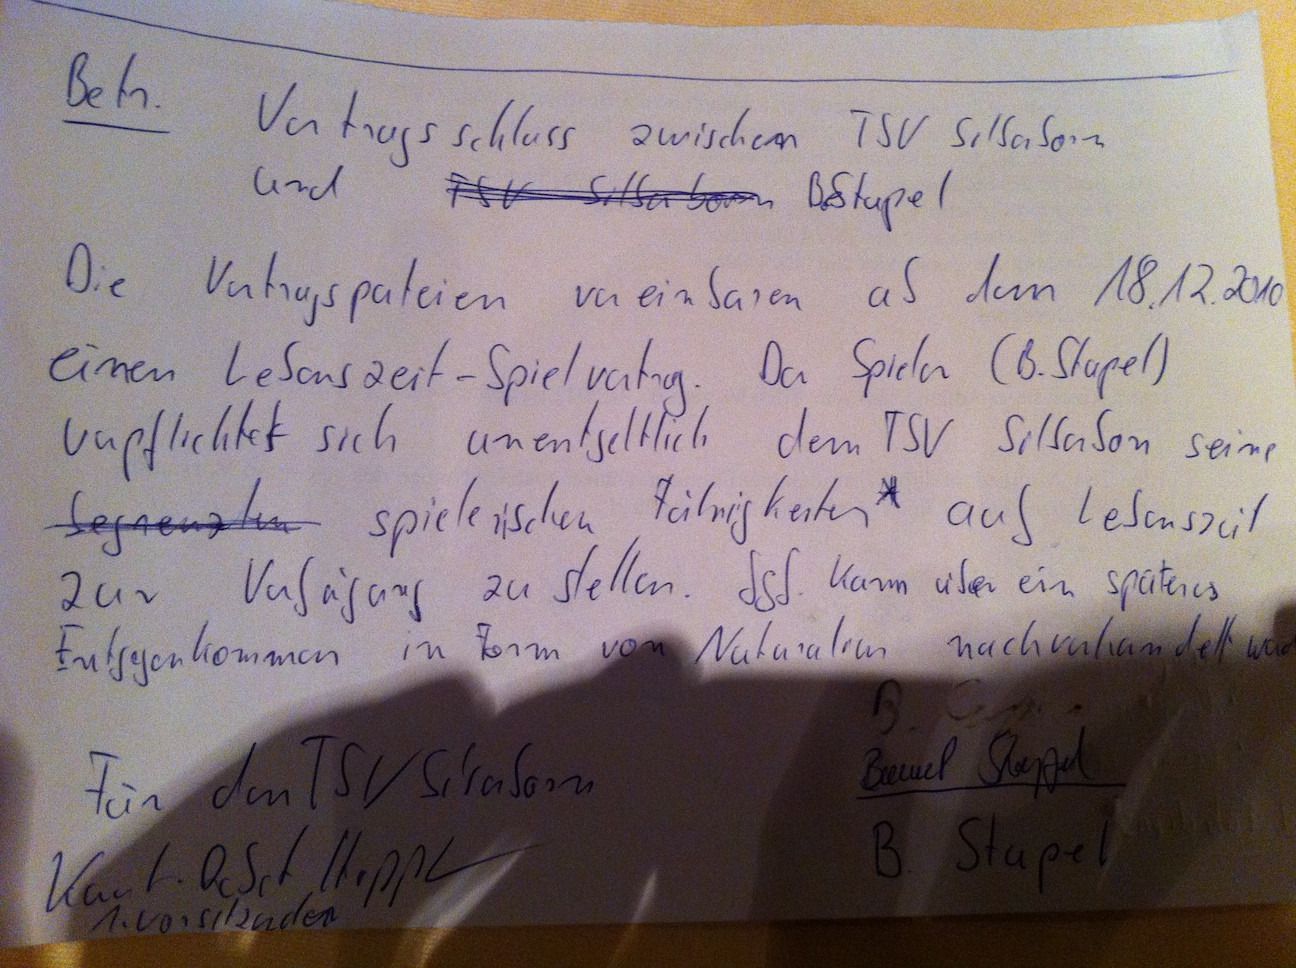 Betr.
Vertragsschluss zwischen TSV Silberborn
und TSV Silberborn B. Stapel
Die Vertragspateien vereinbaren ab dem 18.12.2010
einen Lebenszeit-Spielvertrag. Der Spieler (B. Stapel)
verpflichtet sich unentgeltlich dem TSV Silberborn seine
begrenzten spielerischen Fähigkeiten* auf Lebenszeit
zur Verfügung zu stellen. Ggf. kann über ein späteres
Entgegenkommen in Form von Naturalien nachverhandelt
B.
Für den TSV Silberborn
Stapel
B. Stapel
1. Vorsitzender